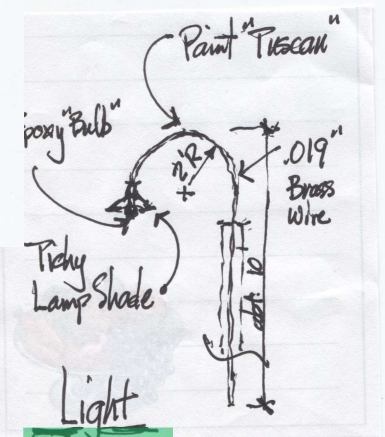 Paint "Tuscan"
Epoxy "Bulb"
.019"
Brass
Wire
2'R
Tichy
Lamp Shade
abt 10
Light